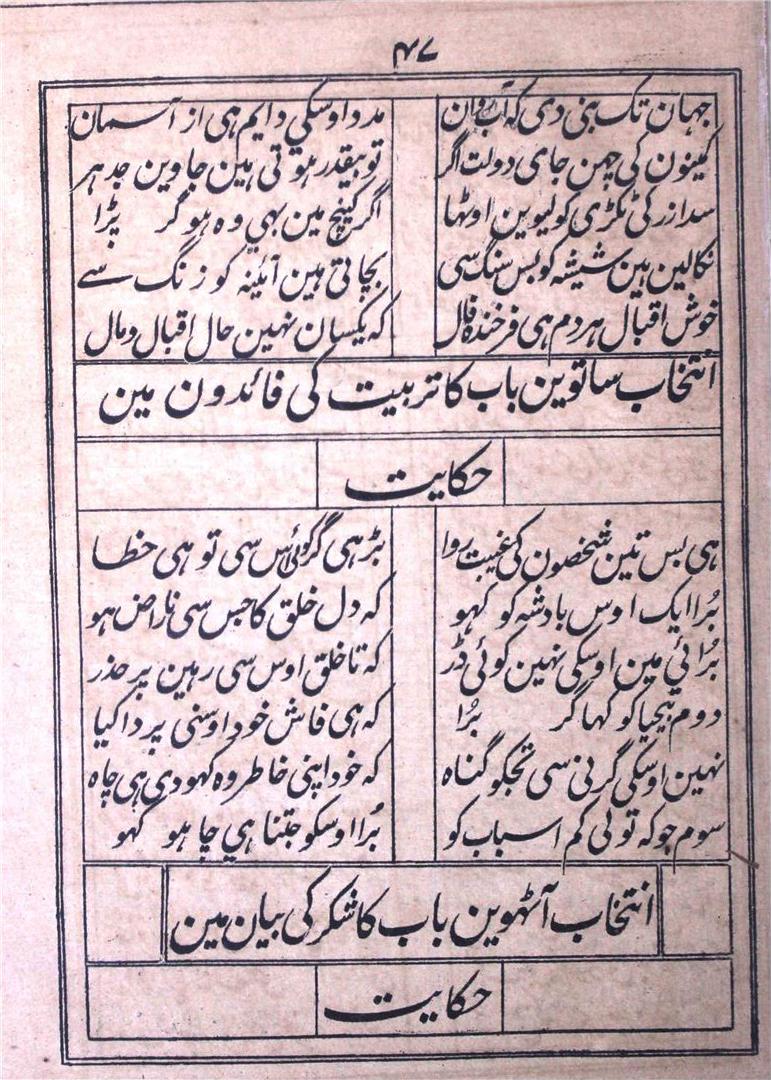 ۴۷
جہان تک بنی دی کہ آب روان مدد اوسکی دایم ہی از آسمان
کمینون کی چمن جای دولت اگر تو بیقدر ہوتی ہین جاوین جدہر
سدا زر کی ٹکڑی کو لیوین اوٹہا اگر کیچ مین بہی وہ ہو گر پڑا
نکالین ہین شیشہ کو بس سنگ سی بچاتی ہین آئینہ کو زنگ سے
خوش اقبال ہر دم ہی فرخندہ فال کہ یکسان نہین حال اقبال و مال
انتخاب ساتوین باب کا تربیت کی فائدون مین
حکایت
ہی بس تین شخصون کی غیبت روا بڑہی گر کوئی اس سی تو ہی خطا
بُرا ایک اوس بادشہ کو کہو کہ دل خلق کا جس سی ناراض ہو
بُرائی مین اوسکی نہین کوئی ڈر کہ تا خلق اوس سی رہین پر حذر
دوم بیحیا کو کہا گر بُرا کہ ہی فاش خود اوسنی پردا کیا
نہین اوسکی گرنی سی تجکو گناہ کہ خود اپنی خاطر وہ کہودی ہی چاہ
سوم جو کہ تولی کم اسباب کو بُرا اوسکو جتنا ہی چاہو کہو
انتخاب آٹہوین باب کا شکر کی بیان مین
حکایت